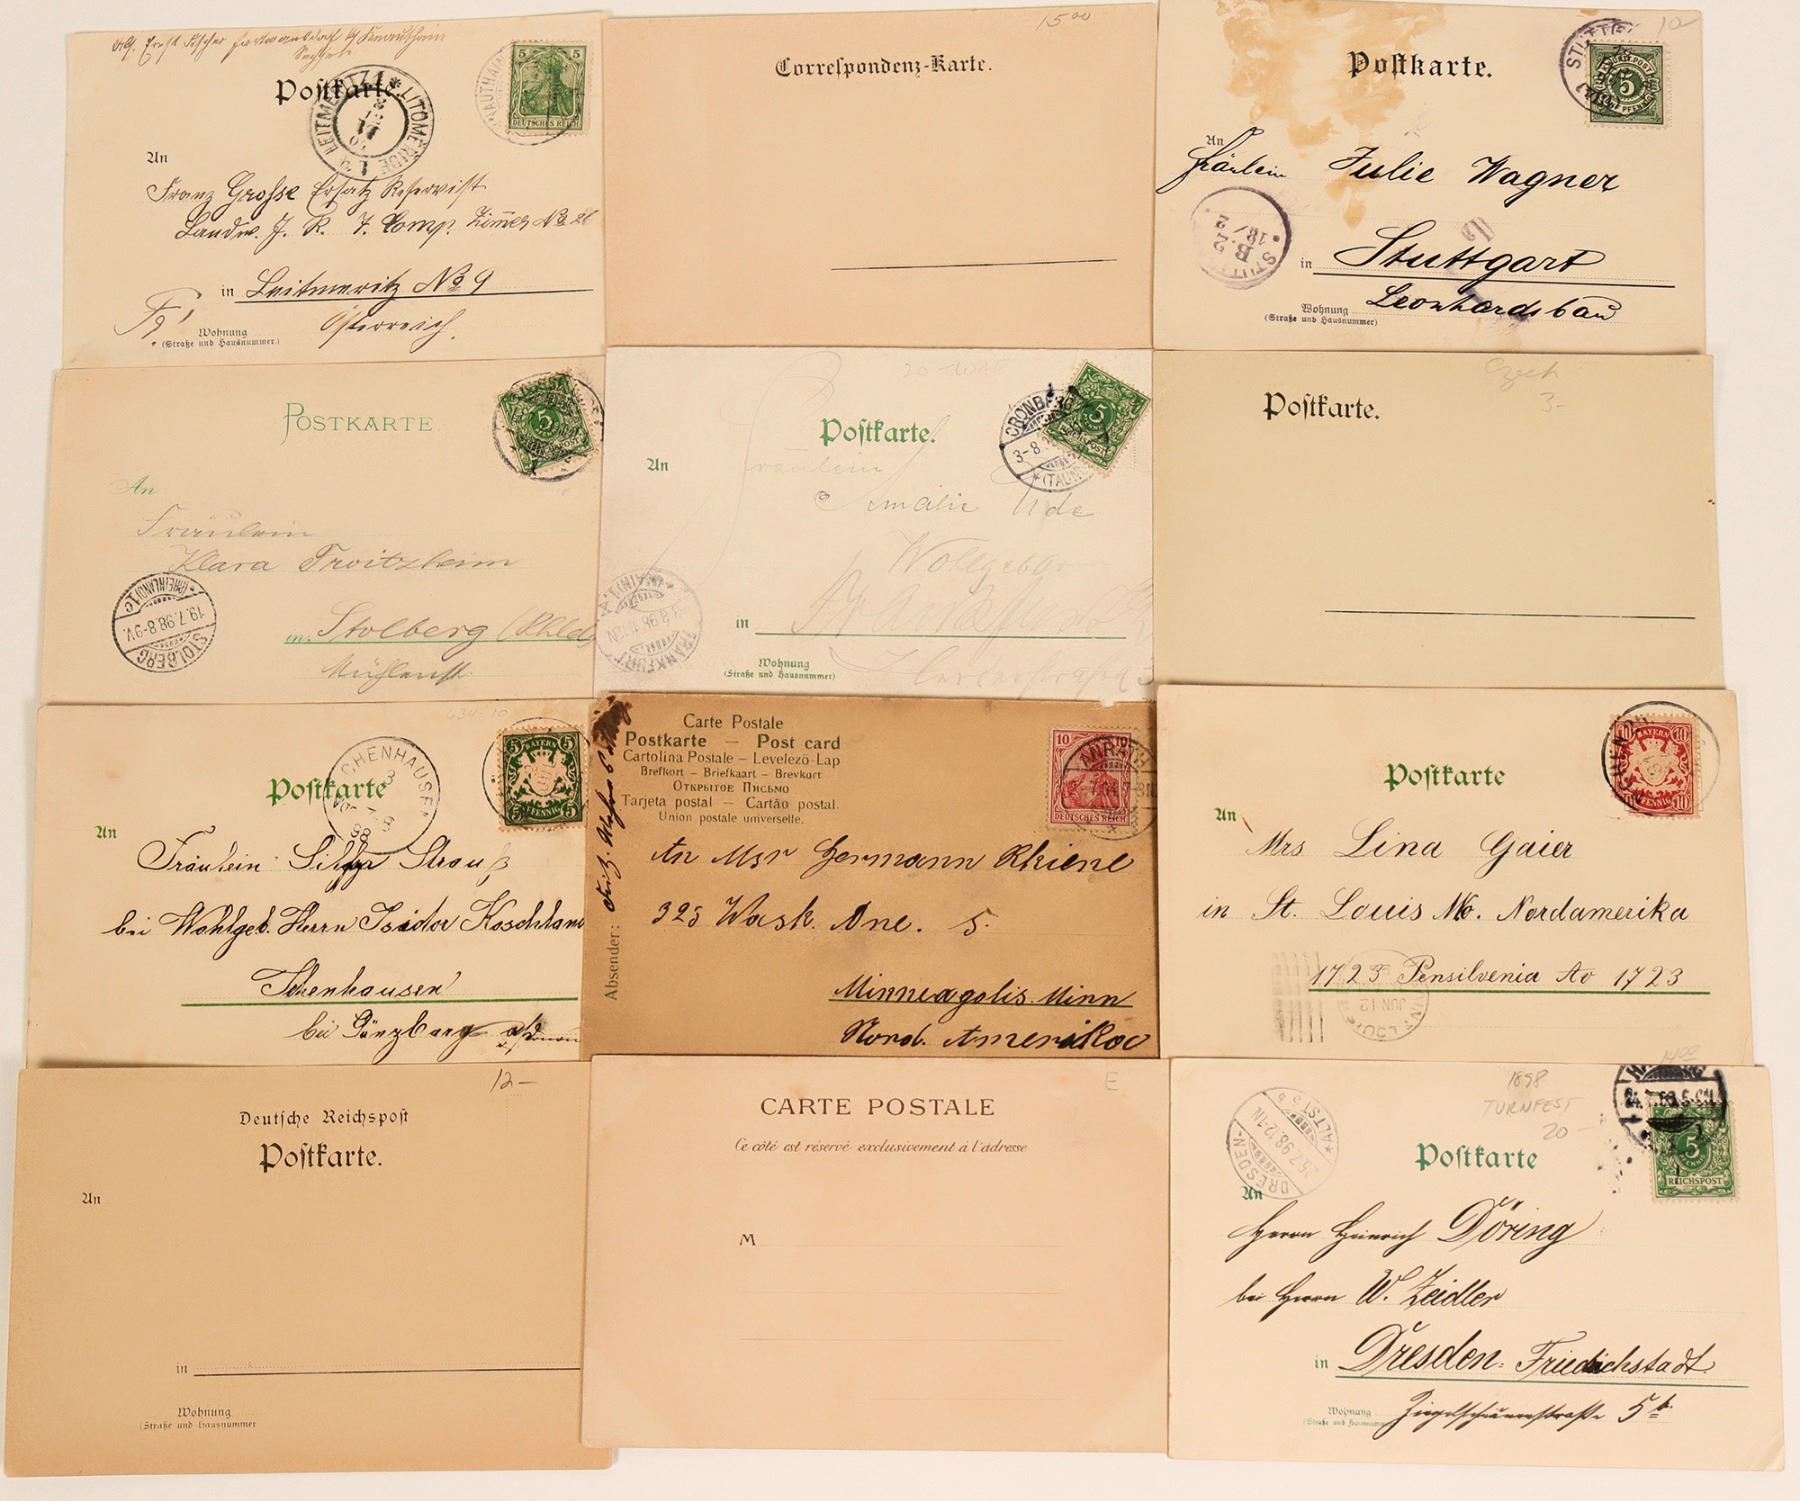 Postkarte.
LEITMERITZ 1 * LITOMĚŘICE 1
5
DEUTSCHES REICH
An
Franz Grosse Ersatz Reservist
Landw. J. R. 7. Comp. Zimmer No 26
in Leitmeritz No 9
Österreich.
Wohnung
(Straße und Hausnummer.)
15 00
Correspondenz-Karte.
10
Postkarte.
5
An
Fräulein Julie Wagner
in Stuttgart
Wohnung
(Straße und Hausnummer)
Leonhardsbau
POSTKARTE
5
An
Fräulein
Klara Troitzheim
in Stolberg (Rhld)
Mühlenst.
STOLBERG
(RHEINLAND) 1c
19.7.98.8-9V.
Postkarte.
CRONBERG
(TAUNUS)
3-8
5
An
Fräulein
Amalie Ude
Wohlgebor
in Frankfurt
Wohnung
(Straße und Hausnummer)
FRANKFURT
Czech
3-
Postkarte.
Postkarte
BAYERN
5
An
Fräulein Silka Strauß
bei Wohlgeb. Herrn Isidor Koschland
Ichenhausen
bei Günzburg a/Donau
Carte Postale
Postkarte — Post card
Cartolina Postale – Levelező-Lap
Brefkort – Briefkaart – Brevkort
Открытое Письмо
Tarjeta postal — Cartão postal.
Union postale universelle.
Absender:
10
DEUTSCHES REICH
ANRATH
An Msr Germann Rhiene
323 Wask. Ane. S.
Minneapolis. Minn
Nord. Amerika
Postkarte
10
BAYERN
PFENNIG
An
Mrs Lina Gaier
in St. Louis Mo. Nordamerika
1723 Pensilvenia Av 1723
JUN 12
12-
Deutsche Reichspost
Postkarte.
An
in
Wohnung
(Straße und Hausnummer
E
CARTE POSTALE
Ce côté est réservé exclusivement à l'adresse
M
1898
TURNFEST
20 -
DRESDEN-
* ALTST. 5 b
25.7.98.12-1N.
Postkarte
5
REICHSPOST
An
Herrn Heinrich Döring
bei Herrn W. Zeidler
in Dresden-Friedrichstadt
Wohnung
(Straße und Hausnummer)
Ziegelscheunenstraße 5 b.